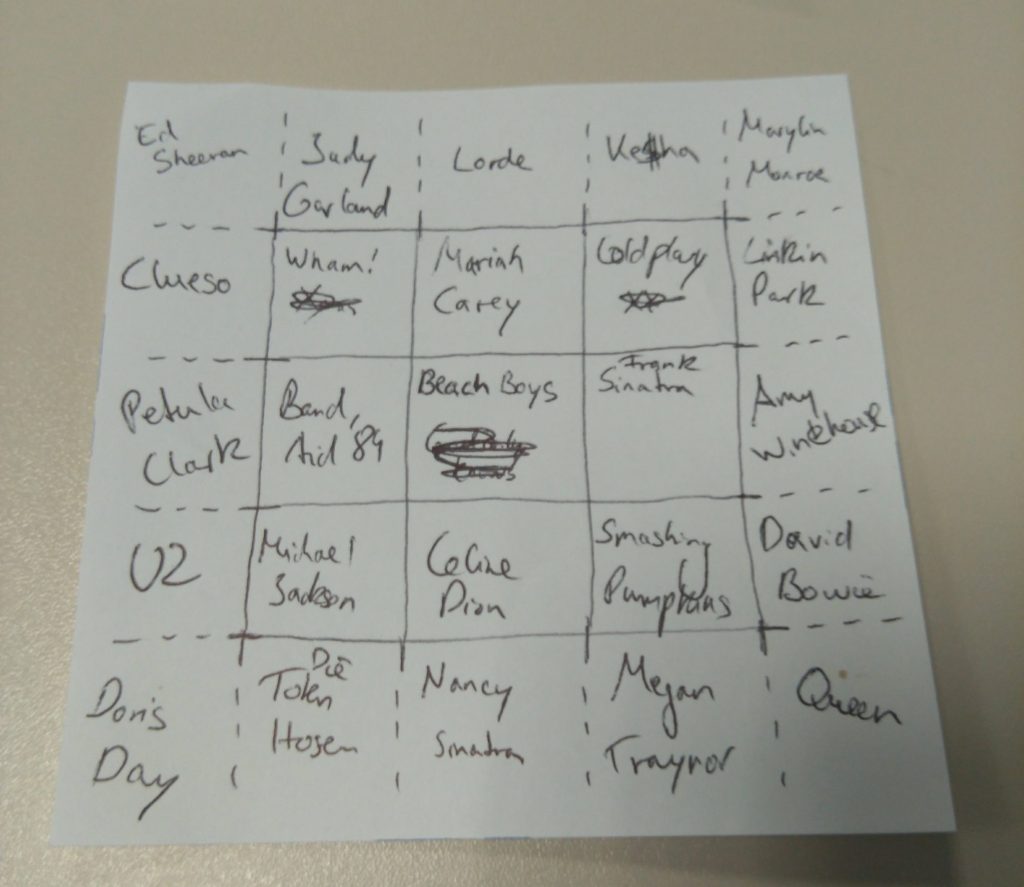 Ed
Sheeran
Judy
Garland
Lorde
Ke$ha
Marylin
Monroe
Clueso
Wham!
Mariah
Carey
Coldplay
Linkin
Park
Petula
Clark
Band
Aid 84
Beach Boys
Frank
Sinatra
Amy
Winehouse
U2
Michael
Jackson
Celine
Dion
Smashing
Pumpkins
David
Bowie
Doris
Day
Die
Toten
Hosen
Nancy
Sinatra
Megan
Traynor
Queen